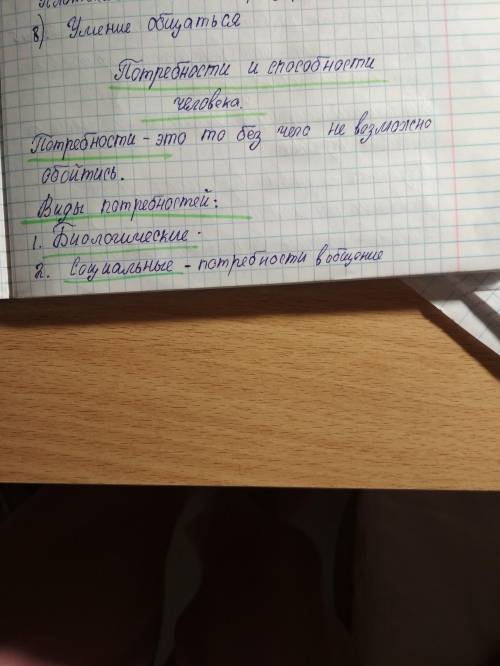 8) Умение общаться
Потребности и способности
человека.
Потребности - это то без чего не возможно
обойтись.
Виды потребностей:
1. Биологические -
2. Социальные - потребности в общение